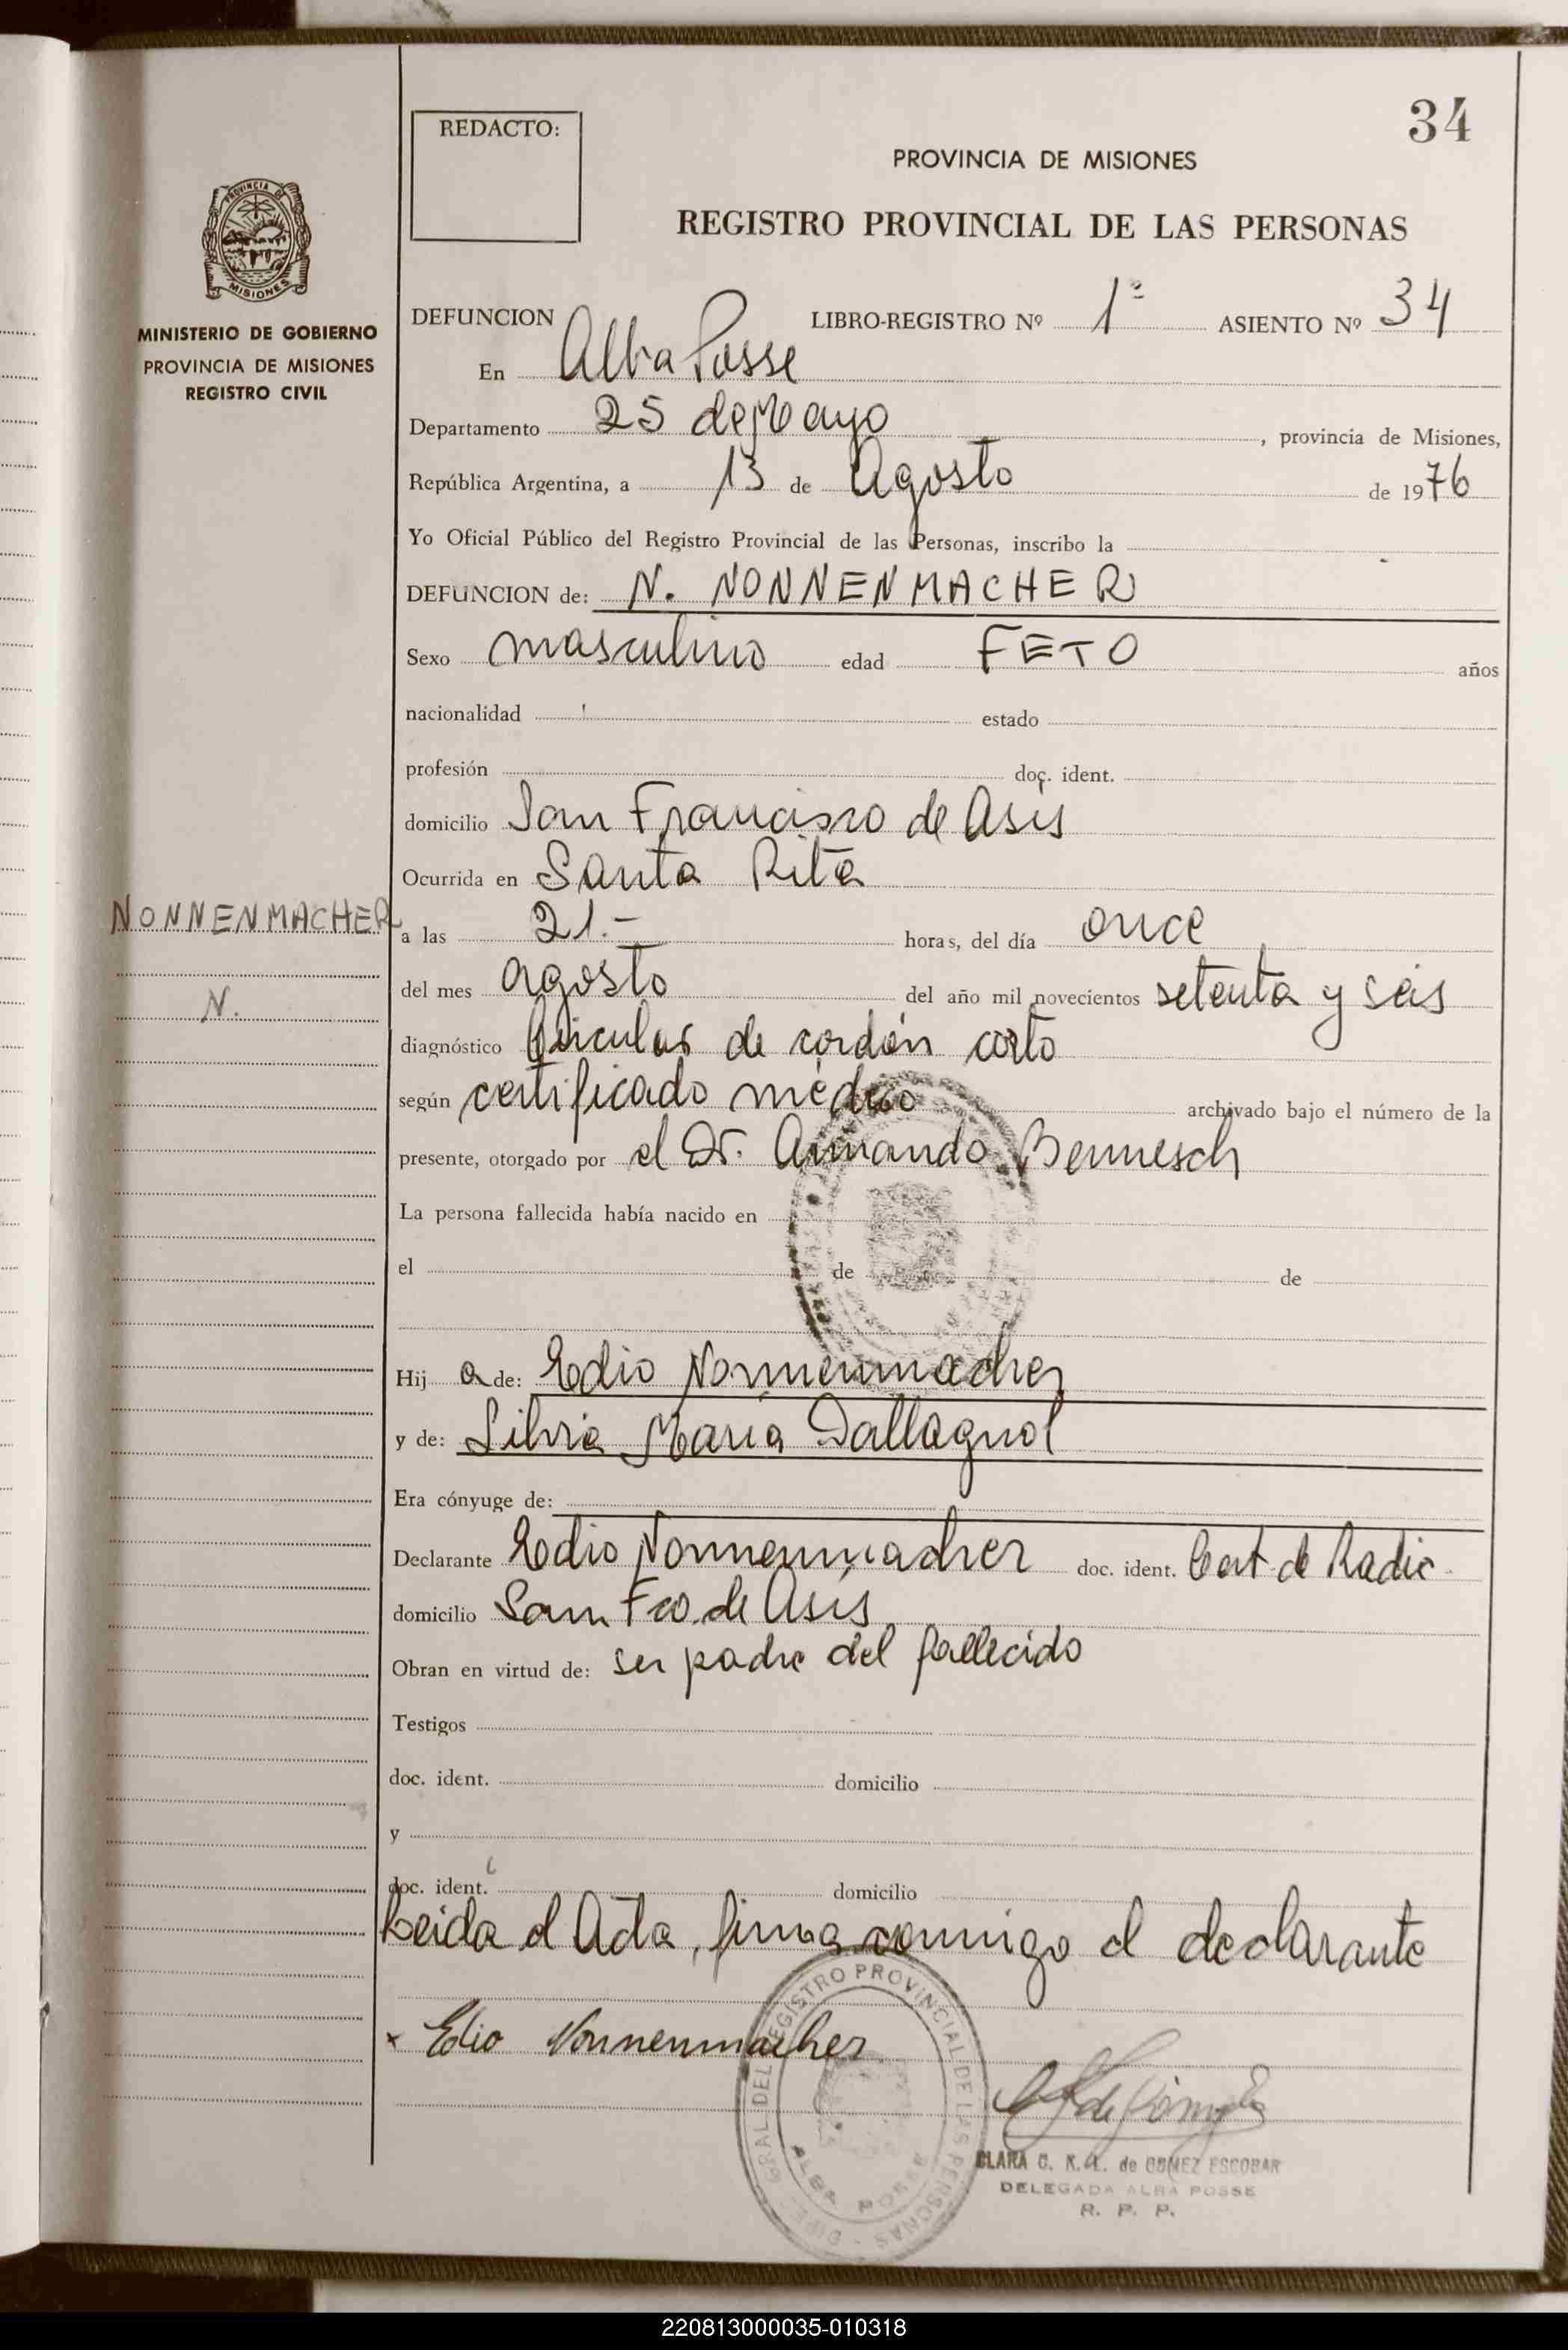 34
REDACTO:
PROVINCIA DE MISIONES
REGISTRO PROVINCIAL DE LAS PERSONAS
PROVINCIA DE
MISIONES
MINISTERIO DE GOBIERNO
PROVINCIA DE MISIONES
REGISTRO CIVIL
DEFUNCION LIBRO-REGISTRO Nº 1º ASIENTO Nº 34
En Alba Posse
Departamento 25 de Mayo, provincia de Misiones,
República Argentina, a 13 de Agosto de 1976
Yo Oficial Público del Registro Provincial de las Personas, inscribo la
DEFUNCION de: N. NONNENMACHER
Sexo masculino edad FETO años
nacionalidad estado
profesión doc. ident.
domicilio San Francisco de Asis
Ocurrida en Santa Rita
NONNENMACHER
N.
a las 21.- horas, del día once
del mes agosto del año mil novecientos setenta y seis
diagnóstico Circular de cordón corto
según certificado médico archivado bajo el número de la
presente, otorgado por el Dr. Armando Bennesch
La persona fallecida había nacido en
el de de
Hij a de: Edio Nonnenmacher
y de: Silvia María Dallagnol
Era cónyuge de:
Declarante Edio Nonnenmacher doc. ident. Cert. de Radic.
domicilio San Fco. de Asís
Obran en virtud de: ser padre del fallecido
Testigos
doc. ident. domicilio
y
doc. ident. domicilio
Leida el Acta, firma conmigo el declarante
x Edio Nonnenmacher
GRAL. DEL REGISTRO PROVINCIAL DE LAS PERSONAS
ALBA POSSE
CLARA C. K. de GOMEZ ESCOBAR
DELEGADA ALBA POSSE
R. P. P.
220813000035-010318